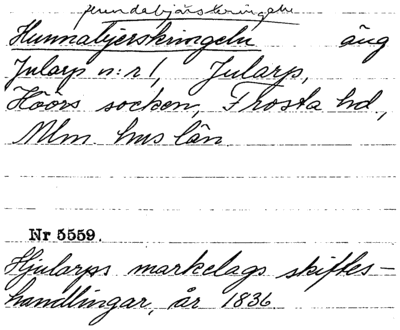 Hunnatjerskringeln äng
Jularp n:r 1, Jularp,
Höörs socken, Frosta hd,
Mlm. hus län
Nr 5559.
Hjularps markelags skiftes-
handlingar, år 1836